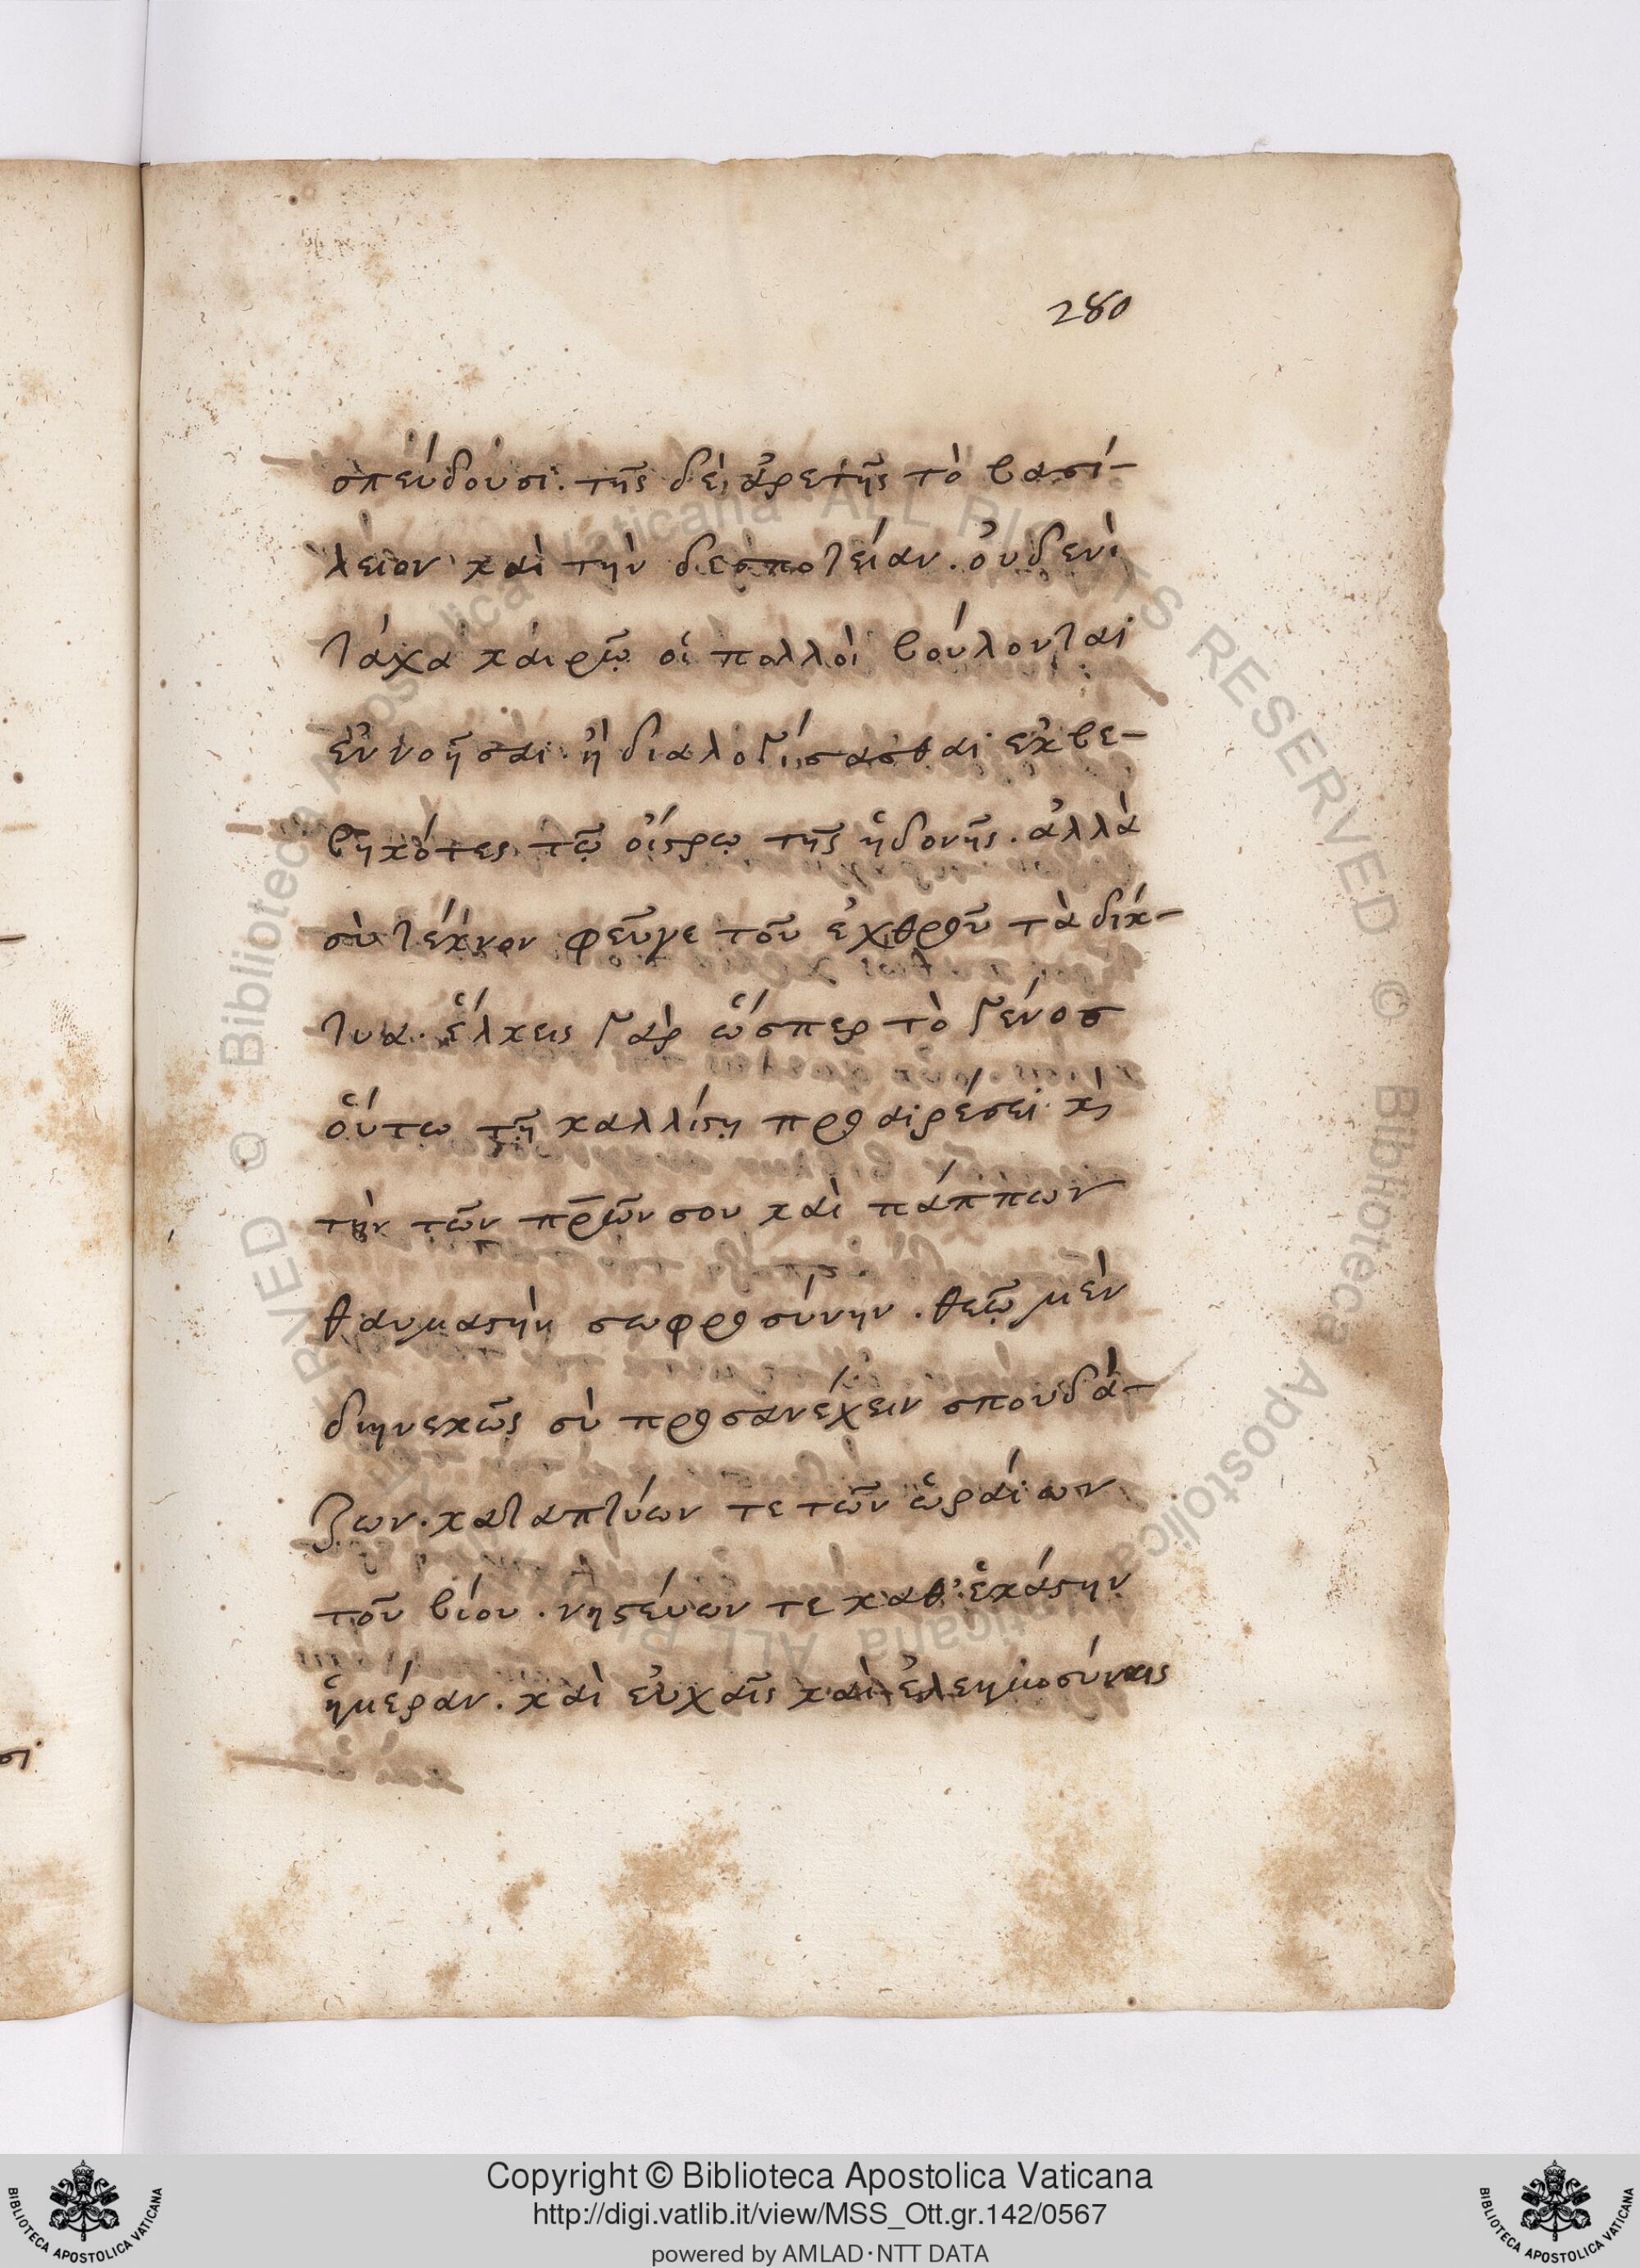 280
σπεύδουσι. της δὲ ἀρετῆς τὸ βασί-
λειον καὶ τὴν δεσποτείαν. οὐδενὶ
τάχα καιρῶ οἱ πολλοὶ βούλονται
ἐννοῆσαι ἢ διαλογίσασθαι ἐκβε-
βηκότες τῶ οἴστρω τῆς ἡδονῆς. ἀλλὰ
σὺ τέκνον φεῦγε τοῦ ἐχθροῦ τὰ δίκ-
τυα. ἕλκεις γὰρ ὥσπερ τὸ γένοσ
οὕτω τῇ καλλίστῃ προαιρέσει κὶ
τὴν τῶν πρῶν σου καὶ πάππων
θαυμαστὴν σωφροσύνην. θεῶ μὲν
διηνεκῶς σὺ προσανέχειν σπουδά-
ζων. καταπτύων τε τῶν ὡραίων
τοῦ βίου. νηστεύων τε καθ' ἑκάστην
ἡμέραν. καὶ εὐχαῖς καὶ ἐλεημοσύναις
© Biblioteca Apostolica Vaticana ALL RIGHTS RESERVED © Biblioteca Apostolica Vaticana ALL RIGHTS RESERVED
BIBLIOTECA APOSTOLICA VATICANA
Copyright © Biblioteca Apostolica Vaticana
http://digi.vatlib.it/view/MSS_Ott.gr.142/0567
powered by AMLAD·NTT DATA
BIBLIOTECA APOSTOLICA VATICANA